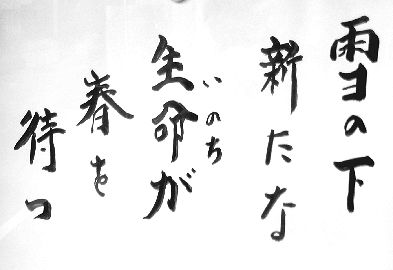 雪の下
新たな
いのち
生命が
春を
待つ